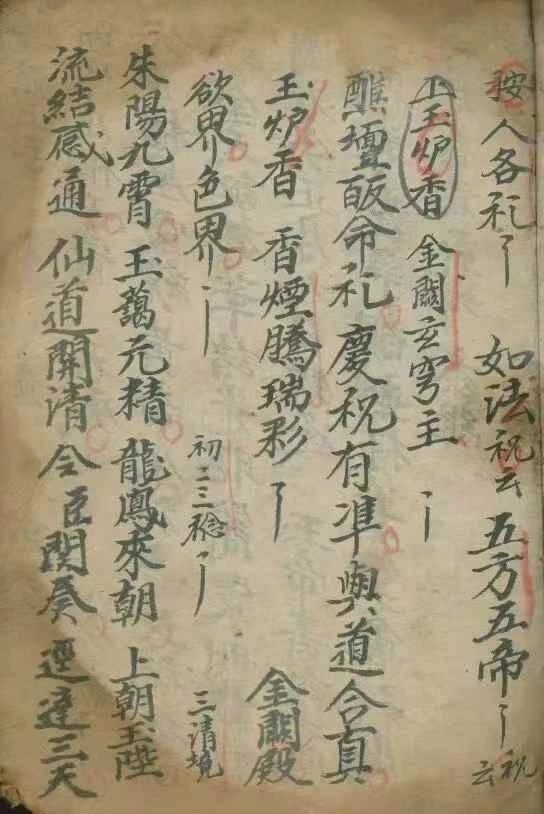 按人各礼 如法祝云 五方五帝 祝云
玉炉香 金闕玄穹主
醮壇皈命礼 慶祝有準與道合真
玉炉香 香煙騰瑞彩 金闕殿
欲界色界 初二三稔 三清境
朱陽九霄 玉藹元精 龍鳳來朝 上朝玉陛
流結感通 仙道開清 今臣関奏 逕達三天